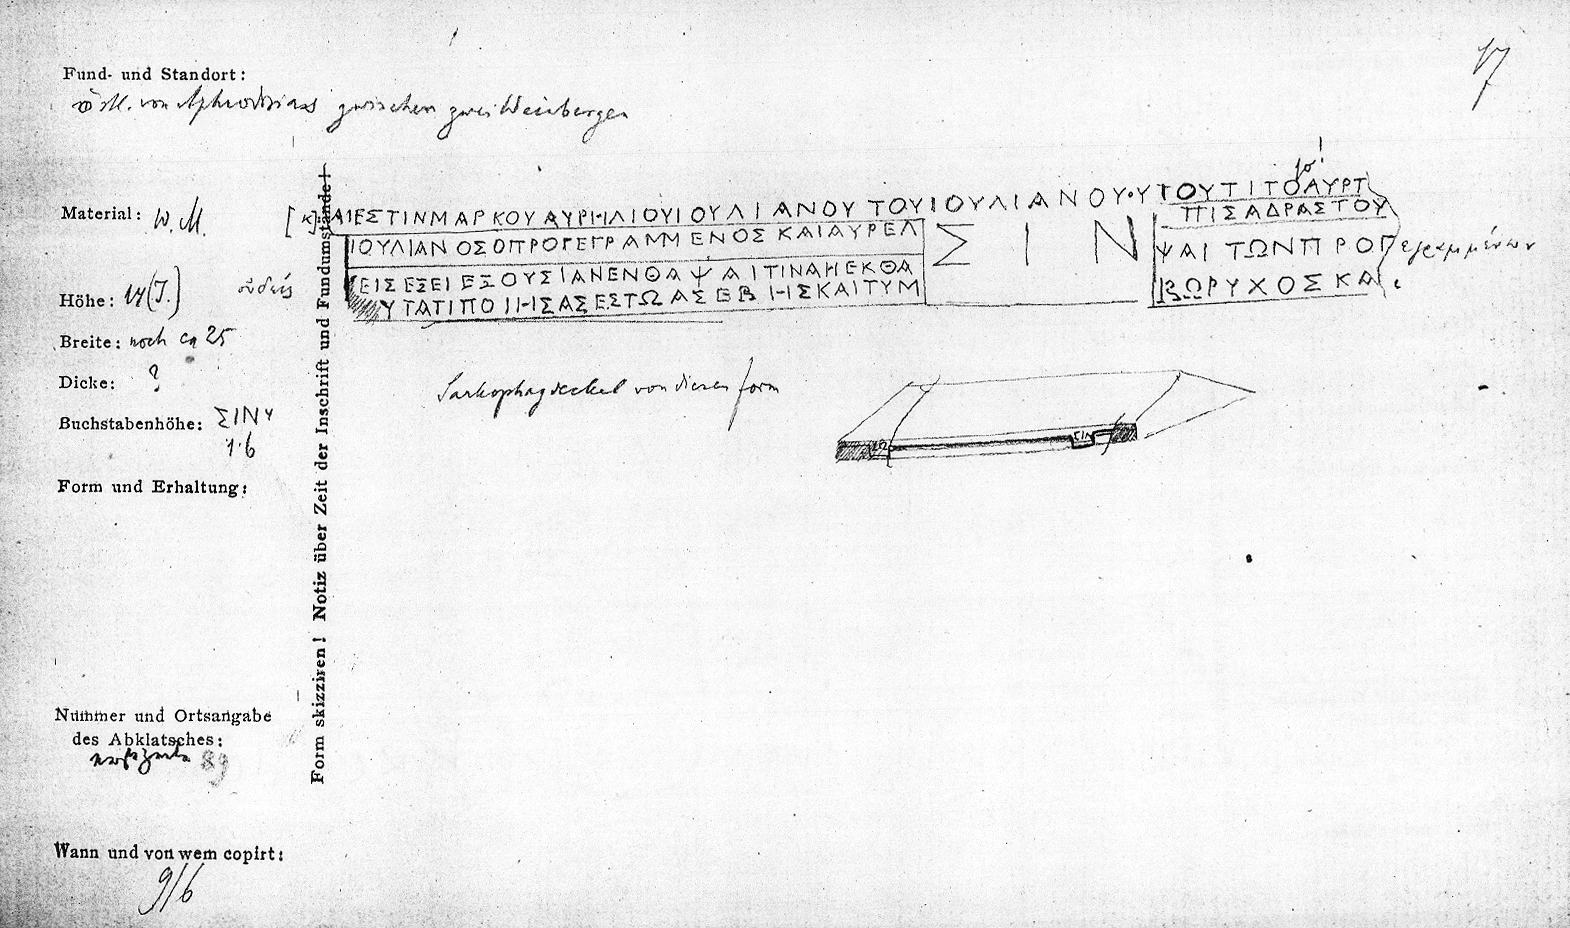 17
Fund- und Standort:
östl. von Aphrodisias zwischen zwei Weinbergen
Material: W. M.
Höhe: 14 (J.)
Breite: noch ca 25
Dicke: ?
Buchstabenhöhe: ΣΙΝ 4
1·6
Form und Erhaltung:
Nummer und Ortsangabe
des Abklatsches:
89
Wann und von wem copirt:
9/6
Form skizziren! Notiz über Zeit der Inschrift und Fundumstände!
so!
[Κ]ΑΙΕΣΤΙΝΜΑΡΚΟΥΑΥΡΗΛΙΟΥΙΟΥΛΙΑΝΟΥ ΤΟΥΙΟΥΛΙΑΝΟΥ·ΥΤΟΥΤΙΤΟΑΥΡΤ
ΠΙΣΑΔΡΑΣΤΟΥ
ΙΟΥΛΙΑΝΟΣΟΠΡΟΓΕΓΡΑΜΜΕΝΟΣΚΑΙΑΥΡΕΛ ΣΙΝ ΨΑΙ ΤΩΝΠΡΟΓεγραμμένων
οὐδείς
ΕΙΣΕΞΕΙΕΞΟΥΣΙΑΝΕΝΘΑΨΑΙΤΙΝΑΗΕΚΘΑ
ΥΤΑΤΙΠΟΙΗΣΑΣΕΣΤΩΑΣΕΒΗΣΚΑΙΤΥΜ ΒΩΡΥΧΟΣΚΑι
Sarkophagdeckel von dieser Form
ΣΙΝ